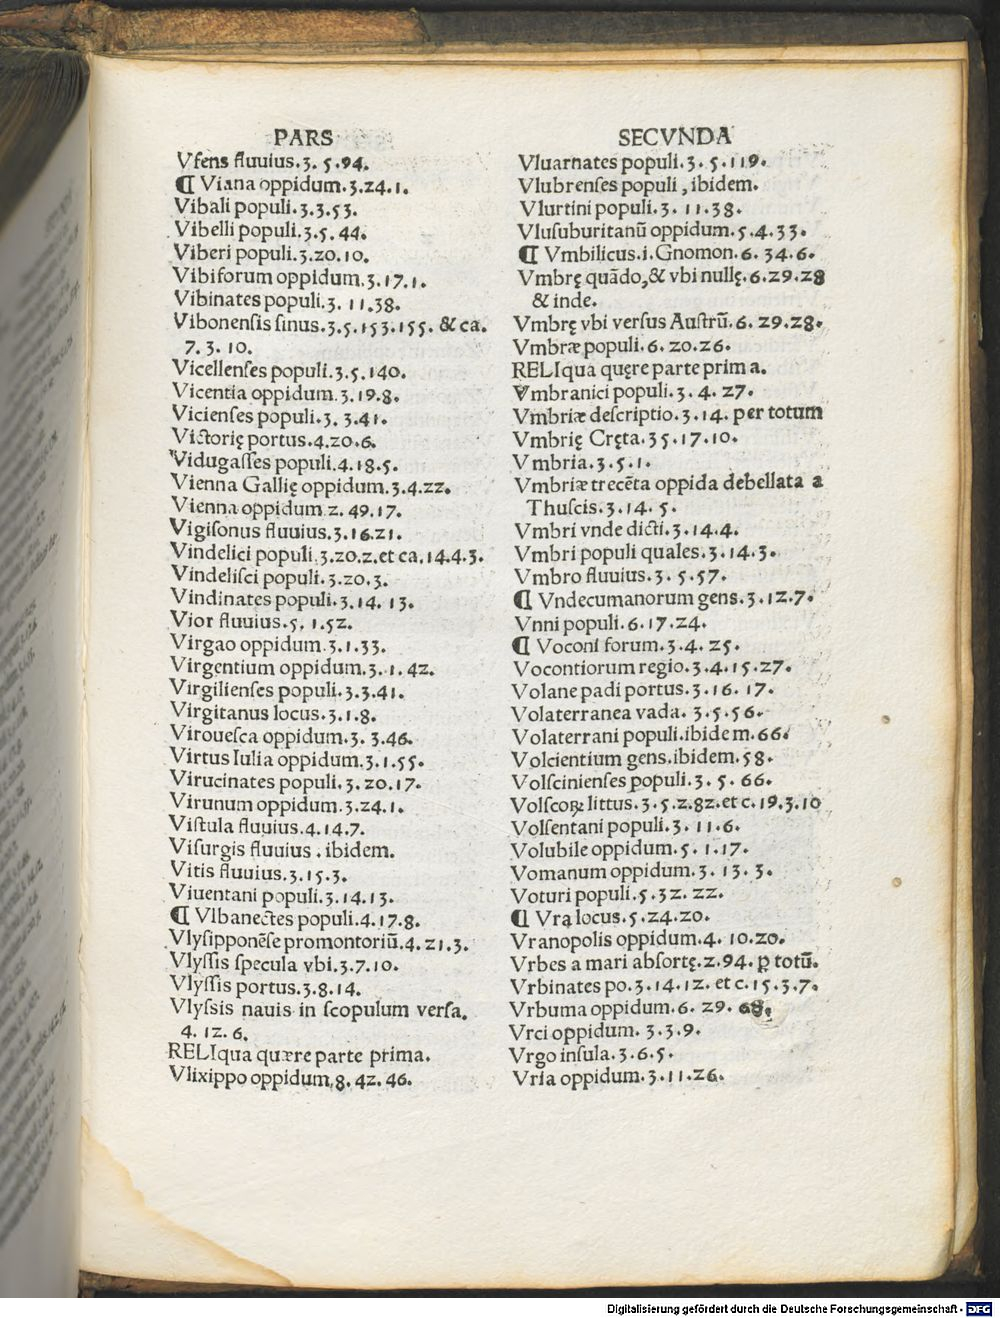 PARS
Vfens fluuius.3. 5.94.
¶ Viana oppidum.3.24.1.
Vibali populi.3.3.53.
Vibelli populi.3.5. 44.
Viberi populi.3.20.10.
Vibiforum oppidum.3.17.1.
Vibinates populi.3. 11.38.
Vibonenſis ſinus.3.5.153.155. & ca.
7. 3. 10.
Vicellenſes populi.3.5.140.
Vicentia oppidum.3.19.8.
Vicienſes populi.3. 3.41.
Victorię portus.4.20.6.
Vidugaſſes populi.4.18.5.
Vienna Gallię oppidum.3.4.22.
Vienna oppidum 2. 49.17.
Vigiſonus fluuius.3.16.21.
Vindelici populi.3.20.2.et ca.14.4.3.
Vindeliſci populi.3.20.3.
Vindinates populi.3.14. 13.
Vior fluuius.5. 1.52.
Virgao oppidum.3.1.33.
Virgentium oppidum.3.1. 42.
Virgilienſes populi.3.3.41.
Virgitanus locus.3.1.8.
Viroueſca oppidum.3. 3.46.
Virtus Iulia oppidum.3.1.55.
Virucinates populi.3.20.17.
Virunum oppidum.3.24.1.
Viſtula fluuius.4.14.7.
Viſurgis fluuius . ibidem.
Vitis fluuius.3.15.3.
Viuentani populi.3.14.13.
¶ Vlbanectes populi.4.17.8.
Vlyſipponēſe promontoriū.4.21.3.
Vlyſſis ſpecula vbi.3.7.10.
Vlyſſis portus.3.8.14.
Vlyſsis nauis in ſcopulum verſa.
4. 12. 6.
RELIqua quære parte prima.
Vlixippo oppidum.8. 42. 46.
SECVNDA
Vluarnates populi.3. 5.119.
Vlubrenſes populi , ibidem.
Vlurtini populi.3. 11.38.
Vluſuburitanū oppidum.5.4.33.
¶ Vmbilicus.i.Gnomon.6. 34.6.
Vmbrę quādo,& vbi nullę.6.29.28
& inde.
Vmbrę vbi verſus Auſtrū.6. 29.28.
Vmbræ populi.6. 20.26.
RELIqua quęre parte prima.
Vmbranici populi.3. 4. 27.
Vmbriæ deſcriptio.3.14. per totum
Vmbrię Cręta.35.17.10.
Vmbria.3.5.1.
Vmbriæ trecēta oppida debellata a
Thuſcis.3.14. 5.
Vmbri vnde dicti.3.14.4.
Vmbri populi quales.3.14.3.
Vmbro fluuius.3. 5.57.
¶ Vndecumanorum gens.3.12.7.
Vnni populi.6.17.24.
¶ Voconi forum.3.4. 25.
Vocontiorum regio.3.4.15.27.
Volane padi portus.3.16. 17.
Volaterranea vada. 3.5.56.
Volaterrani populi.ibidem.66.
Volcientium gens.ibidem.58.
Volſcinienſes populi.3. 5. 66.
Volſcoꝝ littus.3.5.2.82.et c.19.3.10
Volſentani populi.3. 11.6.
Volubile oppidum.5. 1.17.
Vomanum oppidum.3. 13. 3.
Voturi populi.5.32. 22.
¶ Vra locus.5.24.20.
Vranopolis oppidum.4. 10.20.
Vrbes a mari abſortę.2.94. ꝑ totū.
Vrbinates po.3.14.12. et c.15.3.7.
Vrbuma oppidum.6. 29. 68.
Vrci oppidum. 3.3.9.
Vrgo inſula.3.6.5.
Vria oppidum.3.11.26.
Digitalisierung gefördert durch die Deutsche Forschungsgemeinschaft - DFG